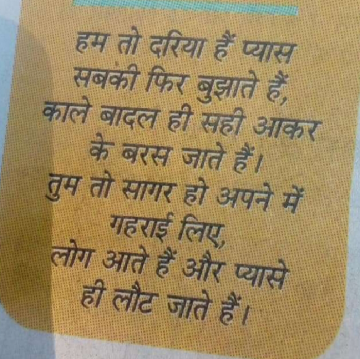 हम तो दरिया हैं प्यास
सबकी फिर बुझाते हैं,
काले बादल ही सही आकर
के बरस जाते हैं।
तुम तो सागर हो अपने में
गहराई लिए,
लोग आते हैं और प्यासे
ही लौट जाते हैं।